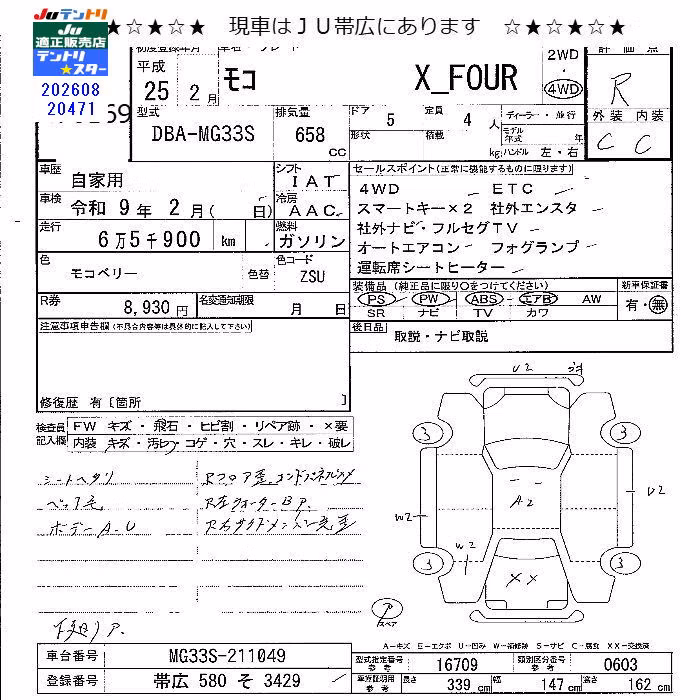 Juテントリ
Ju
適正販売店
テントリ
★スター
202608
20471
★☆★☆ 現車はＪＵ帯広にあります ☆★☆★☆★
初度登録年月
平成
25 2月
モコ
X_FOUR
2WD
4WD
評価点
R
外装 内装
C C
型式
DBA-MG33S
排気量
658
CC
ドア
5
定員
4 人
形状
積載
kg
ディーラー・並行
モデル年式 年
ハンドル 左・右
車歴
自家用
シフト
IAT
車検
令和 9年 2月( 日)
冷房
AAC
走行
6万5千900 km
燃料
ガソリン
色
モコベリー
色替
色コード
ZSU
R券
8,930円
名変通知期限
月 日
セールスポイント(正常に機能するものに限ります)
4WD ETC
スマートキー×2 社外エンスタ
社外ナビ・フルセグTV
オートエアコン フォグランプ
運転席シートヒーター
装備品 (純正品に限り○をつけてください)
PS PW ABS エアB AW
SR ナビ TV カワ
新車保証書
有・無
後日品
取説・ナビ取説
注意事項申告欄(不具合内容等は具体的に記入して下さい)
修復歴 有〔箇所 〕
検査員記入欄
FW キズ・飛石・ヒビ割・リペア跡・×要
内装 キズ・汚レ・コゲ・穴・スレ・キレ・破レ
シートヘタリ
ペット毛
ボデーA-U
Rフロア歪
U2
3 3
A2
W2
U2
W2
3 3
XX
P
スペア
下廻りア.
A-キズ E-エクボ U-凹み W-補修跡 S-サビ C-腐食 XX-交換済
車台番号
MG33S-211049
登録番号
帯広 580 そ 3429
型式指定番号
参考
16709
類別区分番号
参考
0603
車庫証明用
参考
長さ 339 cm
幅 147 cm
高さ 162 cm